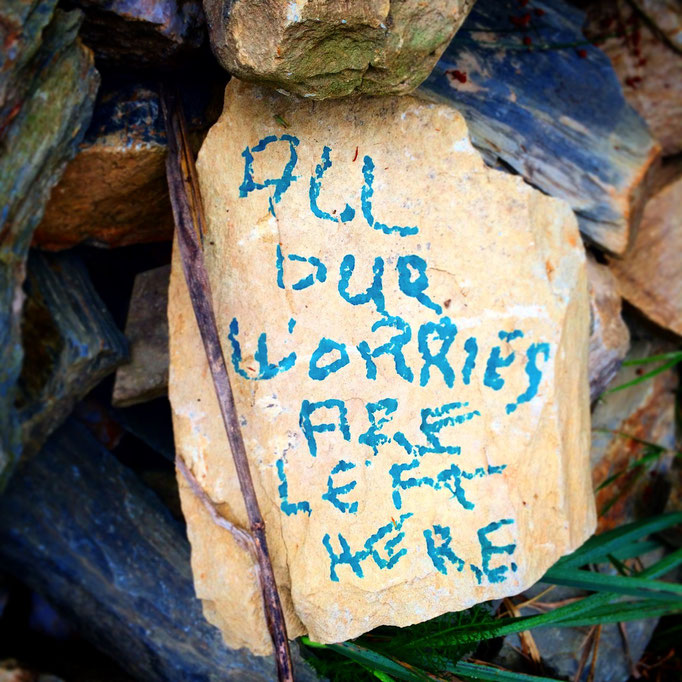 ALL
OUR
WORRIES
ARE
LEFT
HERE